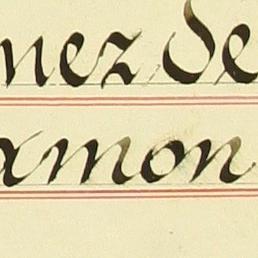 nez de
xmon